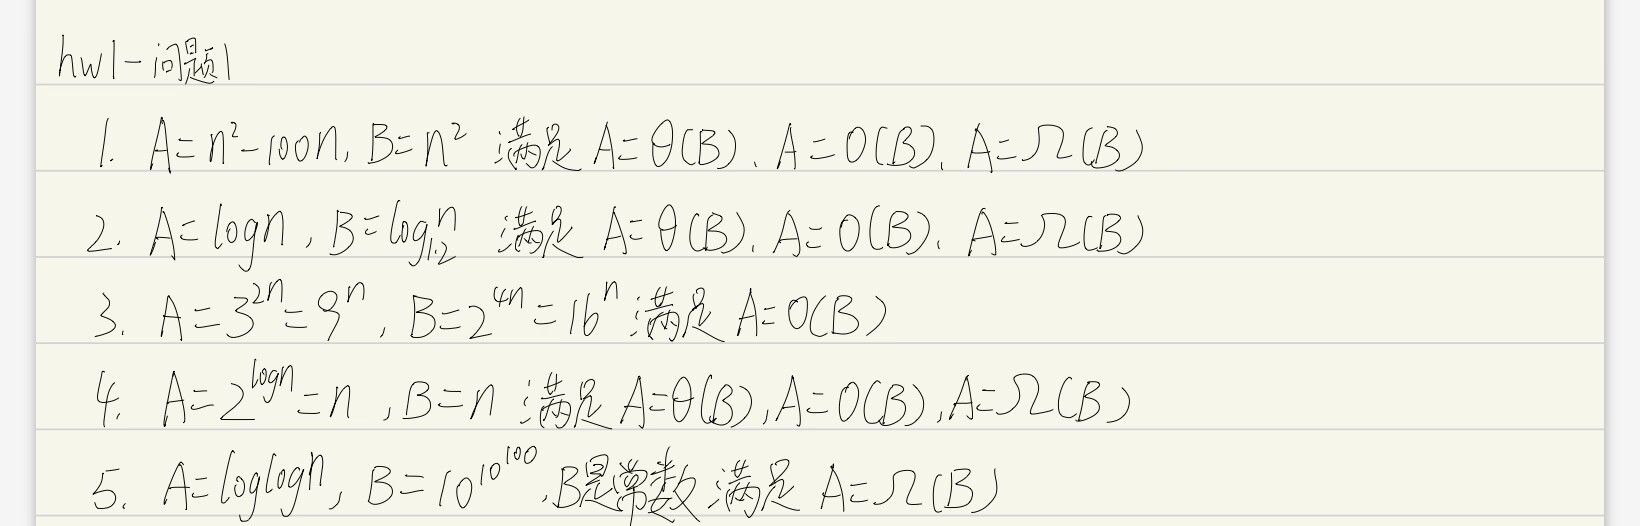 hw1-问题1
1. A=n²-100n, B=n² 满足 A=θ(B)、A=O(B)、A=Ω(B)
2. A=logn, B=log₁.₂n 满足 A=θ(B)、A=O(B)、A=Ω(B)
3. A=3²ⁿ=9ⁿ, B=2⁴ⁿ=16ⁿ 满足 A=O(B)
4. A=2^logn=n, B=n 满足 A=θ(B), A=O(B), A=Ω(B)
5. A=loglogn, B=10^10^100, B是常数 满足 A=Ω(B)